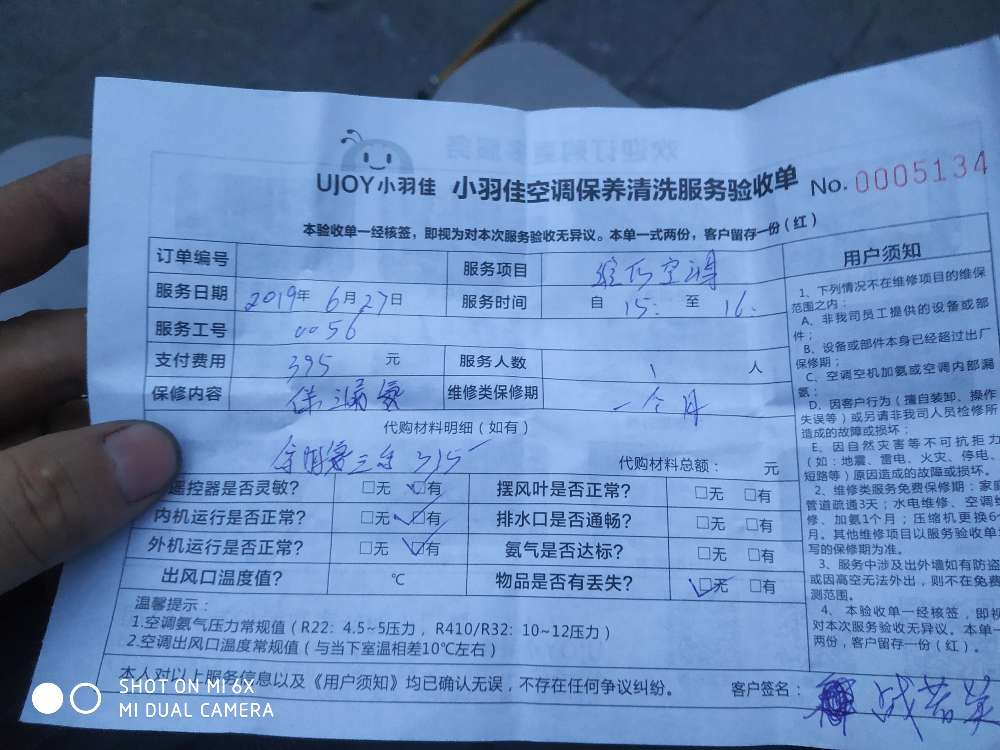 UJOY小羽佳 小羽佳空调保养清洗服务验收单 No. 0005134
本验收单一经核签，即视为对本次服务验收无异议。本单一式两份，客户留存一份（红）
订单编号 服务项目 空调
服务日期 2019年6月27日 服务时间 自 15: 至 16:
服务工号 0056
支付费用 395 元 服务人数 1 人
保修内容 保 漏氨 维修类保修期 一个月
代购材料明细（如有）
代购材料总额： 元
遥控器是否灵敏？ □无 □有 摆风叶是否正常？ □无 □有
内机运行是否正常？ □无 □有 排水口是否通畅？ □无 □有
外机运行是否正常？ □无 □有 氨气是否达标？ □无 □有
出风口温度值？ ℃ 物品是否有丢失？ □无 □有
温馨提示：
1.空调氨气压力常规值（R22：4.5~5压力，R410/R32：10~12压力）
2.空调出风口温度常规值（与当下室温相差10℃左右）
本人对以上服务信息以及《用户须知》均已确认无误，不存在任何争议纠纷。 客户签名：
用户须知
1、下列情况不在维修项目的维保
范围之内：
A、非我司员工提供的设备或部
件；
B、设备或部件本身已经超过出厂
保修期；
C、空调空机加氨或空调内部漏
氨；
D、因客户行为（擅自装卸、操作
失误等）或另请非我司人员检修所
造成的故障或损坏；
E、因自然灾害等不可抗拒力
（如：地震、雷电、火灾、停电、
短路等）原因造成的故障或损坏。
2、维修类服务免费保修期：家庭
管道疏通3天；水电维修、空调维
修、加氨1个月；压缩机更换6
月。其他维修项目以服务验收单
写的保修期为准。
3、服务中涉及出外墙如有防盗
或因高空无法外出，则不在免费
测范围。
4、本验收单一经核签，即视
对本次服务验收无异议。本单一
两份，客户留存一份（红）。
SHOT ON MI 6X
MI DUAL CAMERA